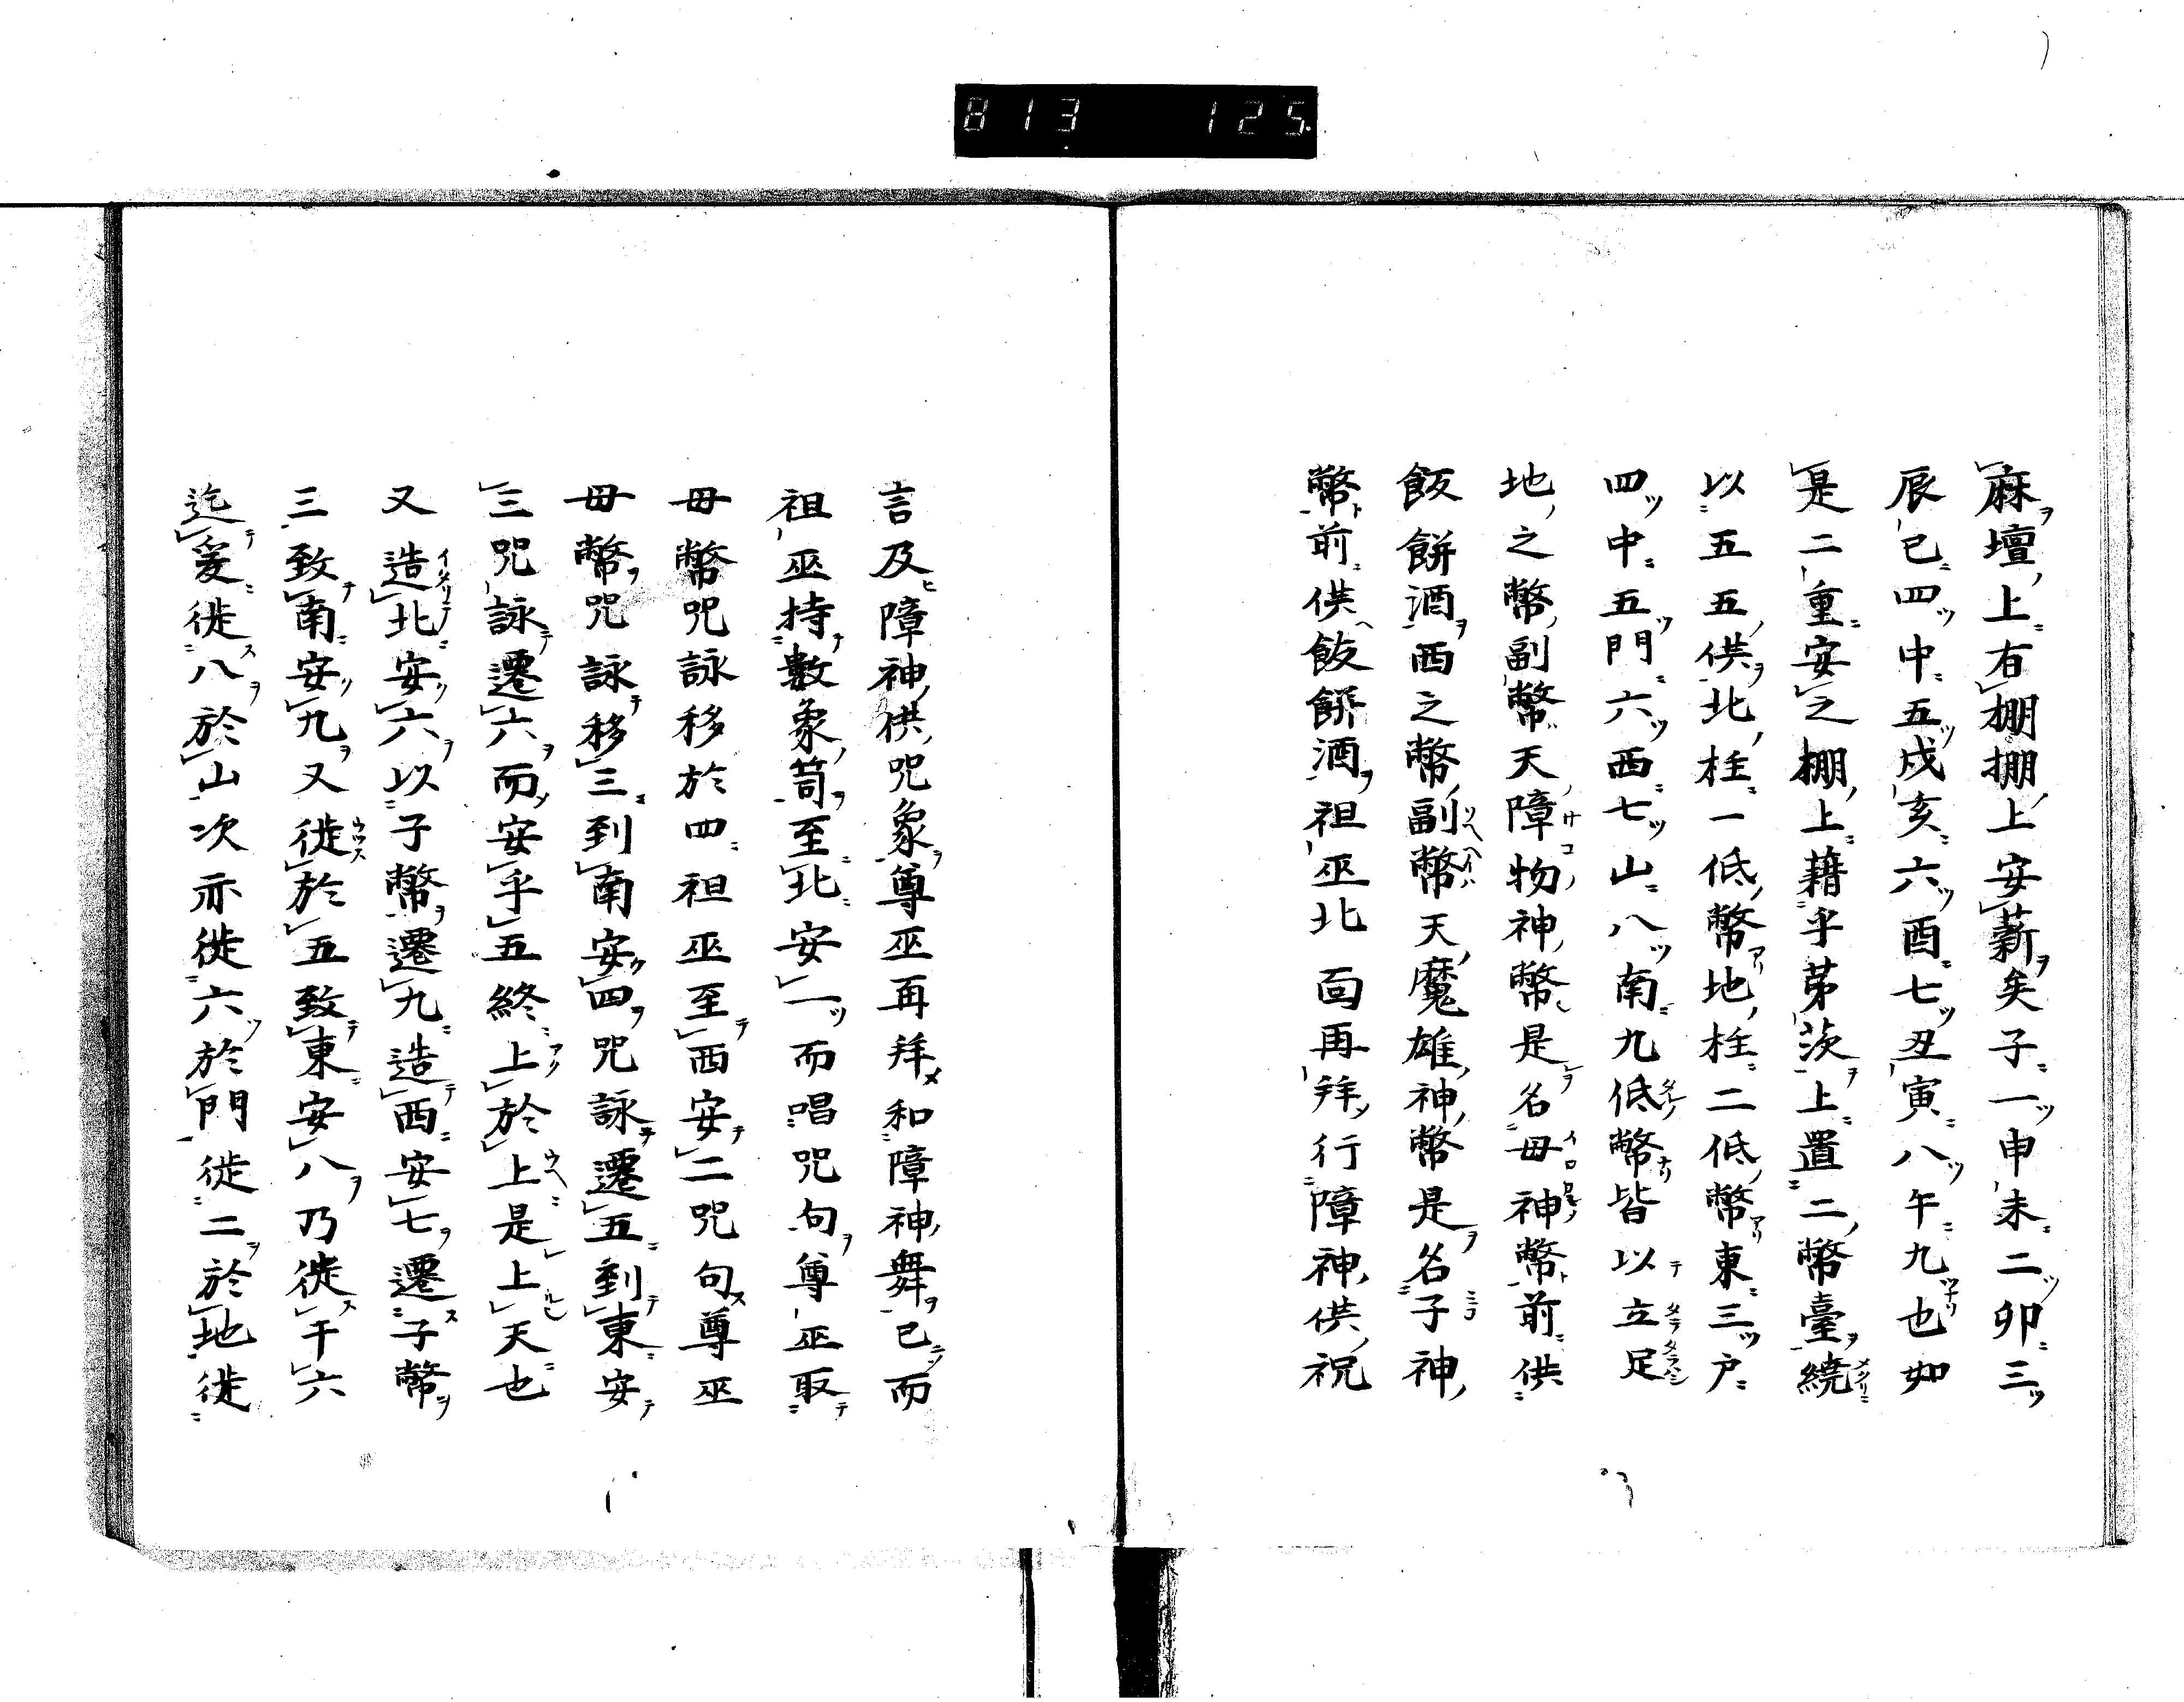 813 125.
麻壇上右棚棚上安薪矣子一申未二卯三
辰巳四中五戌亥六酉七丑寅八午九也如
是二重安之棚上藉乎茅茨上置二幣臺繞
以五五供北柱一低幣地柱二低幣東三戸
四中五門六西七山八南九低幣皆以立足
地之幣副幣天障物神幣是名母神幣前供
飯餅酒西之幣副幣天魔雄神幣是名子神
幣前供飯餅酒祖巫北面再拜行障神供祝
言及障神供咒象尊巫再拜和障神舞已而
祖巫持數象笥至北安一而唱咒句尊巫取
母幣咒詠移於四祖巫至西安二咒句尊巫
母幣咒詠移三到南安四咒詠遷五到東安
三咒詠遷六而安乎五終上於上是上天也
又造北安六以子幣遷九造西安七遷子幣
三致南安九又徙於五致東安八乃徙于六
迄爰徙八於山次亦徙六於門徙二於地徙